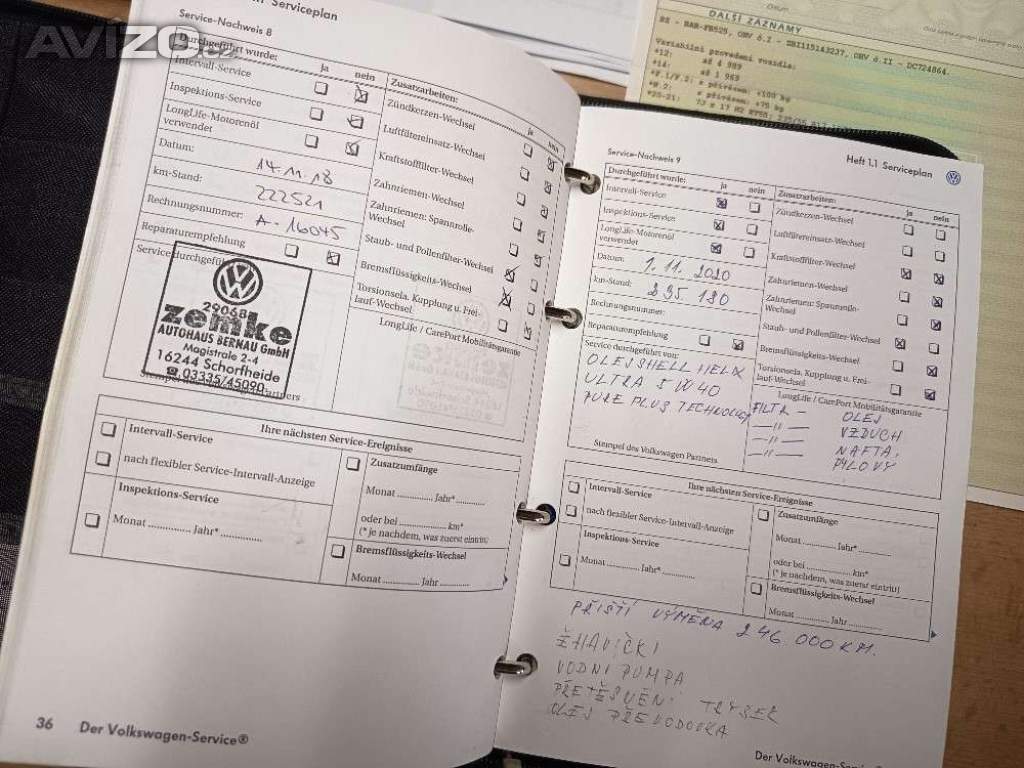 AVÍZO.cz
1.1 Serviceplan
Service-Nachweis 8
Durchgeführt wurde:
ja
nein
Intervall-Service
Inspektions-Service
LongLife-Motorenöl
verwendet
Datum:
14.11.18
km-Stand:
222521
Rechnungsnummer:
A-16045
Reparaturempfehlung
Service durchgeführt
29068
zemke
AUTOHAUS BERNAU GmbH
Magistrale 2-4
16244 Schorfheide
☎ 03335/45090
Partners
Zusatzarbeiten:
ja
nein
Zündkerzen-Wechsel
Luftfiltereinsatz-Wechsel
Kraftstofffilter-Wechsel
Zahnriemen-Wechsel
Zahnriemen: Spannrolle-
Wechsel
Staub- und Pollenfilter-Wechsel
Bremsflüssigkeits-Wechsel
Torsionsela. Kupplung u. Frei-
lauf-Wechsel
LongLife / CarePort Mobilitätsgarantie
Ihre nächsten Service-Ereignisse
Intervall-Service
nach flexibler Service-Intervall-Anzeige
Inspektions-Service
Monat ............... Jahr* ...............
Zusatzumfänge
Monat ............... Jahr* ...............
oder bei ............... km*
(* je nachdem, was zuerst eintritt)
Bremsflüssigkeits-Wechsel
Monat ............... Jahr ...............
36
Der Volkswagen-Service®
DALŠÍ ZÁZNAMY
Variabilní provedení vozidla:
Service-Nachweis 9
Heft 1.1 Serviceplan
Durchgeführt wurde:
ja
nein
Intervall-Service
Inspektions-Service
LongLife-Motorenöl
verwendet
Datum:
1.11.2020
km-Stand:
235.180
Rechnungsnummer:
Reparaturempfehlung
Service durchgeführt von:
OLEJ SHELL HELIX
ULTRA 5W40
PURE PLUS TECHNOLOGY
Stempel des Volkswagen Partners
Zusatzarbeiten:
ja
nein
Zündkerzen-Wechsel
Luftfiltereinsatz-Wechsel
Kraftstofffilter-Wechsel
Zahnriemen-Wechsel
Zahnriemen: Spannrolle-
Wechsel
Staub- und Pollenfilter-Wechsel
Bremsflüssigkeits-Wechsel
Torsionsela. Kupplung u. Frei-
lauf-Wechsel
LongLife / CarePort Mobilitätsgarantie
FILTR - OLEJ
-"- VZDUCH
-"- NAFTA,
-"- PYLOVÝ
Ihre nächsten Service-Ereignisse
Intervall-Service
nach flexibler Service-Intervall-Anzeige
Inspektions-Service
Monat ............... Jahr* ...............
Zusatzumfänge
Monat ............... Jahr* ...............
oder bei ............... km*
(* je nachdem, was zuerst eintritt)
Bremsflüssigkeits-Wechsel
Monat ............... Jahr ...............
PŘÍŠTÍ VÝMĚNA 246 000 KM.
ŽHAVIČKI
VODNI PUMPA
PŘETĚSNĚNÍ TRYSEK
OLEJ PŘEVODOVKA
Der Volkswagen-Service